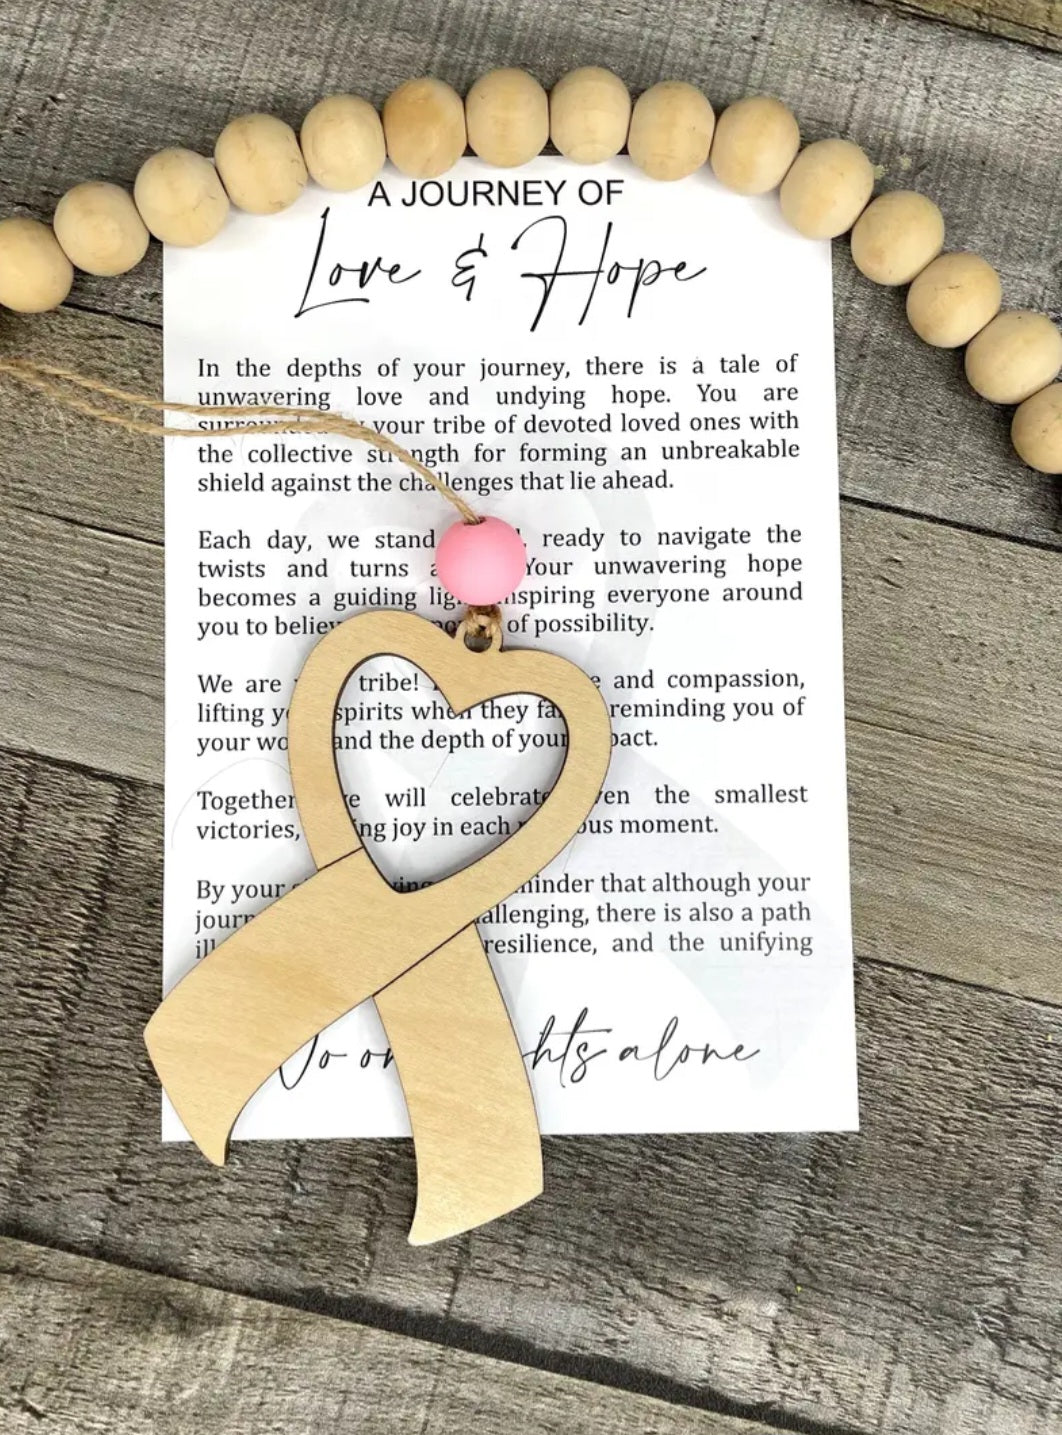 A JOURNEY OF
Love & Hope
In the depths of your journey, there is a tale of
unwavering love and undying hope. You are
your tribe of devoted loved ones with
the collective strength for forming an unbreakable
shield against the challenges that lie ahead.
Each day, we stand ready to navigate the
twists and turns Your unwavering hope
becomes a guiding light, inspiring everyone around
you to believe of possibility.
We are tribe! and compassion,
lifting your spirits when they reminding you of
your and the depth of your
Together we will celebrate even the smallest
victories, joy in each moment.
By your reminder that although your
challenging, there is also a path
resilience, and the unifying
alone